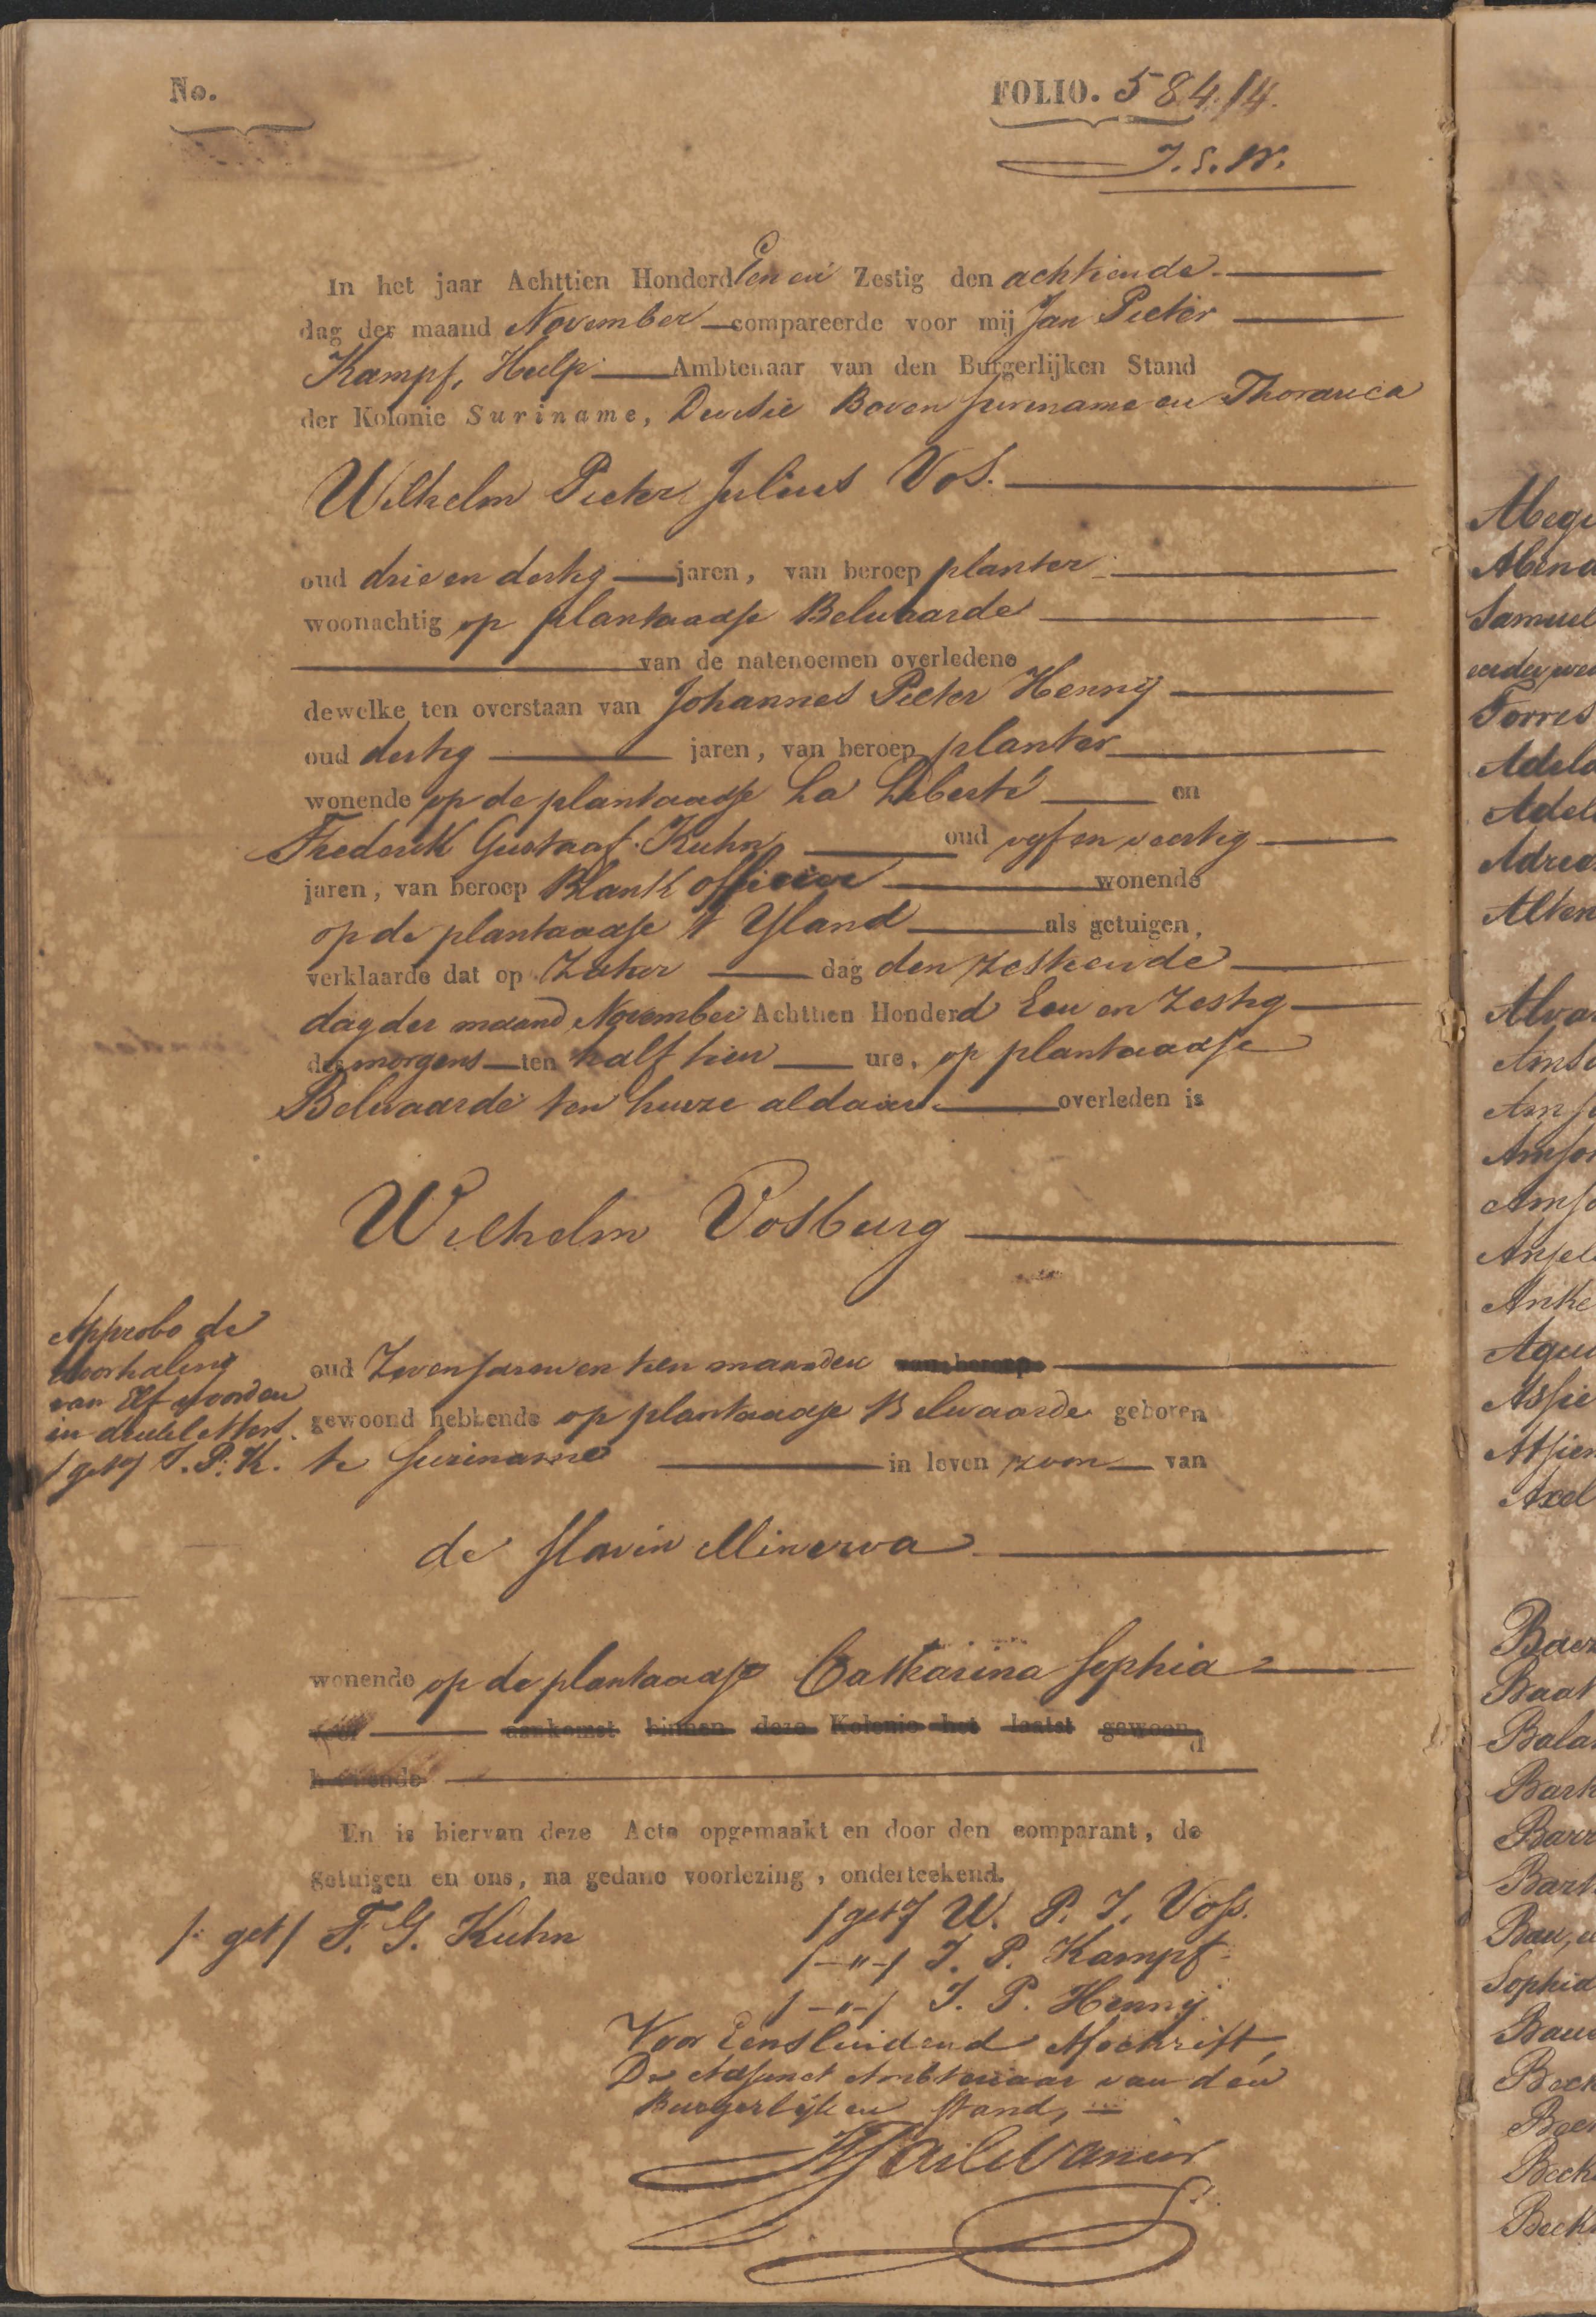 No.
FOLIO. 584/14.
J.S.W.
In het jaar Achttien Honderd Een en Zestig den achtiende
dag der maand November compareerde voor mij Jan Pieter
Kampf, Hulp Ambtenaar van den Burgerlijken Stand
der Kolonie Suriname, Divisie Boven Suriname en Thorarica
Wilhelm Pieter Julius Vos.
oud drie en dertig jaren, van beroep planter
woonachtig op plantaadje Belwaarde
van de natenoemen overledene
dewelke ten overstaan van Johannes Pieter Hennij
oud dertig jaren, van beroep planter
wonende op de plantaadje La Liberté en
Frederik Gustaaf Kuhn oud vyf en veertig
jaren, van beroep Blank officier wonende
op de plantaadje 't Yland als getuigen,
verklaarde dat op Zater dag den zestiende
dag der maand November Achttien Honderd Een en Zestig
des morgens ten half tien ure, op plantaadje
Belwaarde ten huize aldaar overleden is
Wilhelm Vosburg
Approbo de
doorhaling
van Elf woorden
in deeze
/get/ J. P. K.
oud Zeven jaren en tien maanden van beroep
gewoond hebbende op plantaadje Belwaarde geboren
te Suriname in leven zoon van
de slavin Minerva
wonende op de plantaadje Catharina Sophia
voor aankomst binnen deze Kolonie het laatst gewoond
hebbende
En is hiervan deze Acte opgemaakt en door den comparant, de
getuigen en ons, na gedane voorlezing, onderteekend.
/: get/ F. G. Kuhn
/get/ W. P. J. Voss.
/-"-/ J. P. Kampf
/-"-/ J. P. Hennij
Voor Eensluidend Afschrift,
De Adjunct Ambtenaar van den
Burgerlijken Stand,
Abegi
Abena
Samuel
eerder
Torres
Adela
Adel
Adre
Alten
Alva
Amst
Amso
Amsel
Anke
Agu
Assie
Atsie
Axel
Baer
Baat
Bala
Bark
Barr
Bart
Bau, e
Sophia
Baue
Beck
Beck
Beck